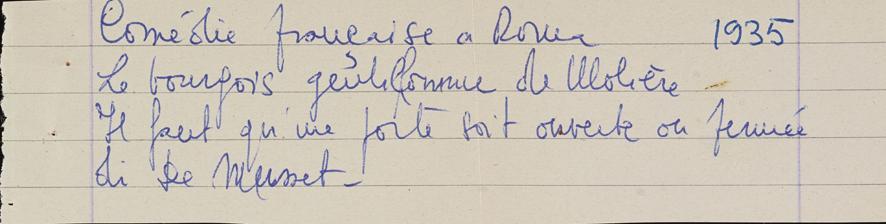 Comédie française a Roma 1935
Le bourgois gentilhomme de Molière
Il faut qu'une porte soit ouverte ou fermée
di De Musset -